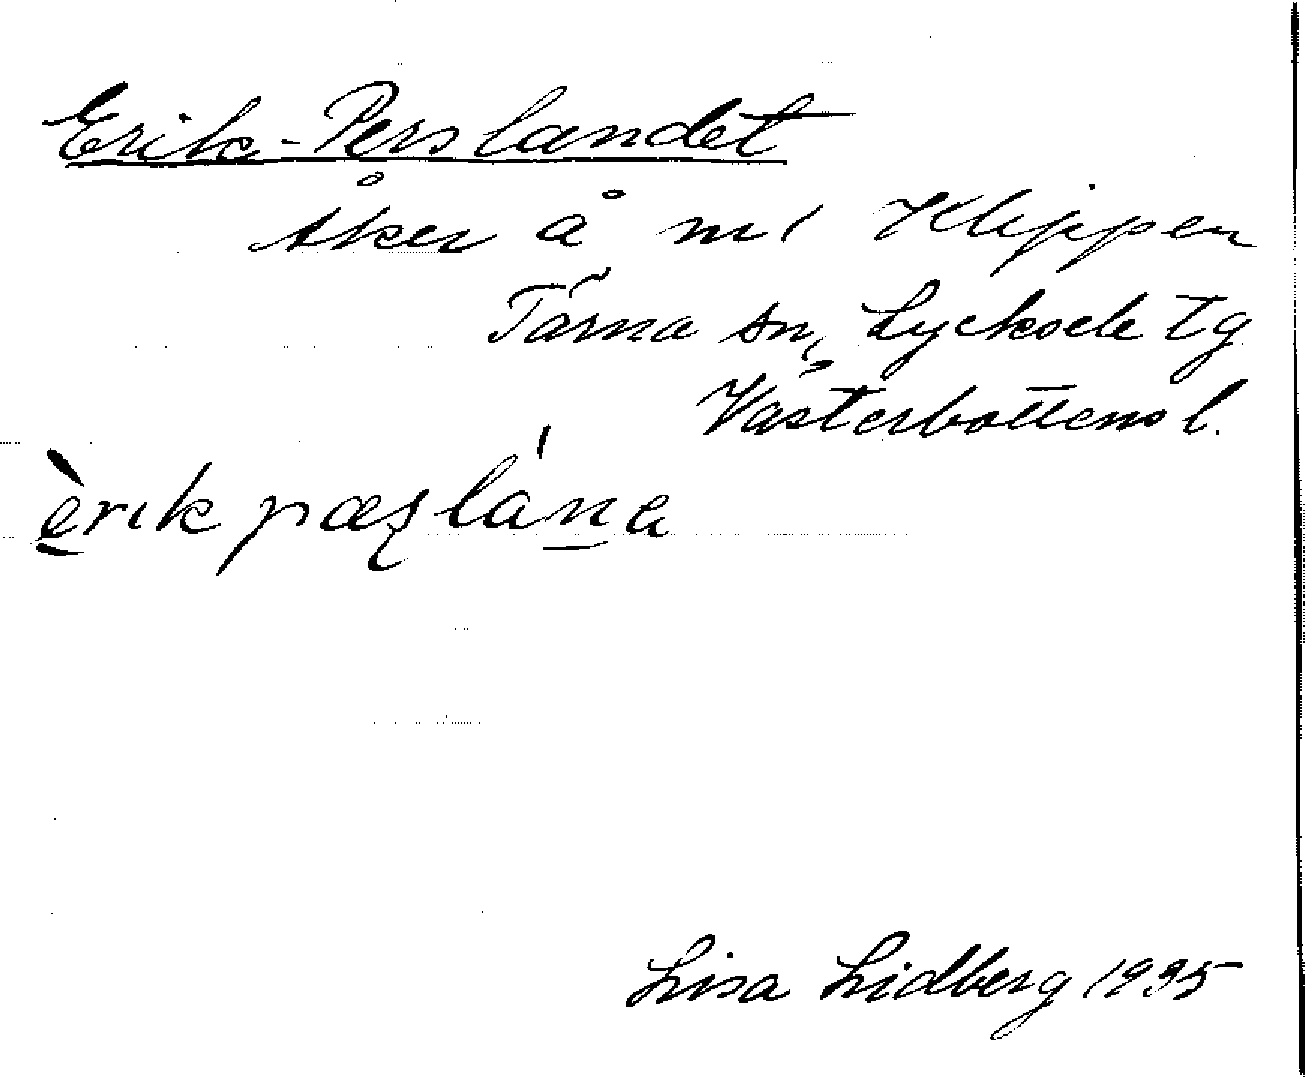 Erik-Perslandet
åker å nr 1 Klippen
Tärna sn, Lycksele tg
Västerbottens l.
èrik pæʂlána
Lisa Lidberg 1935